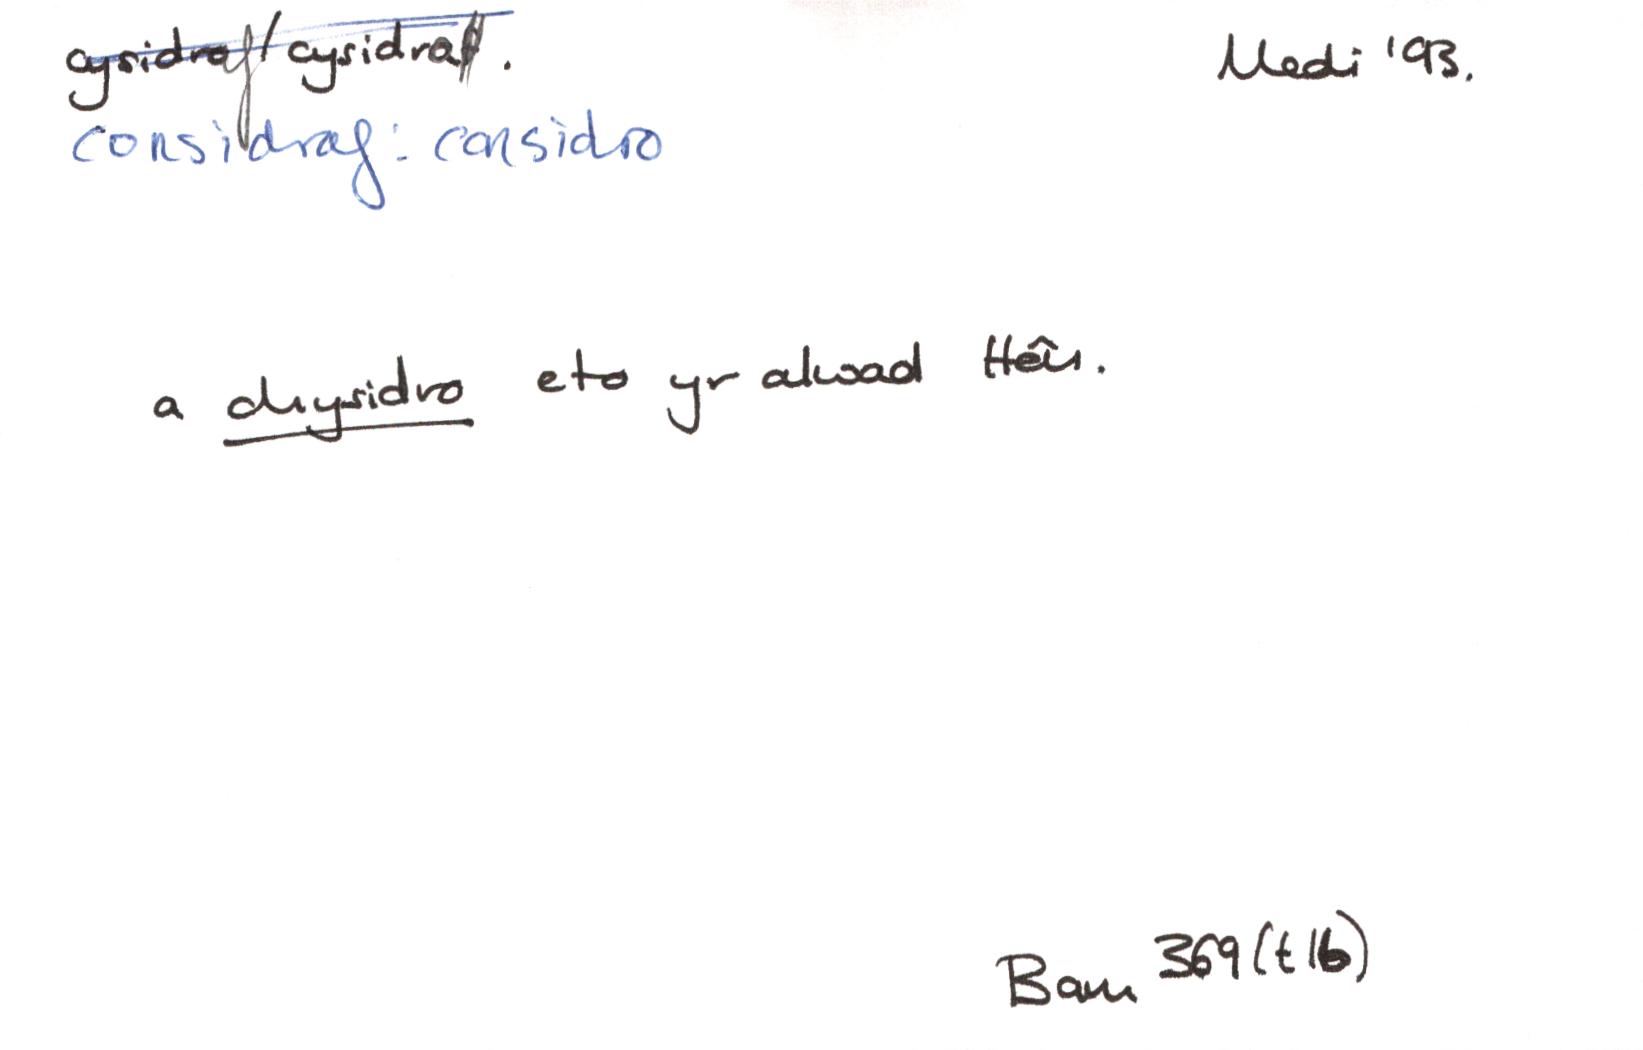 cysidraf / cysidraf. Medi '93.
considraf: considro
a chysidro eto yr alwad
Barn 369 (t 16)